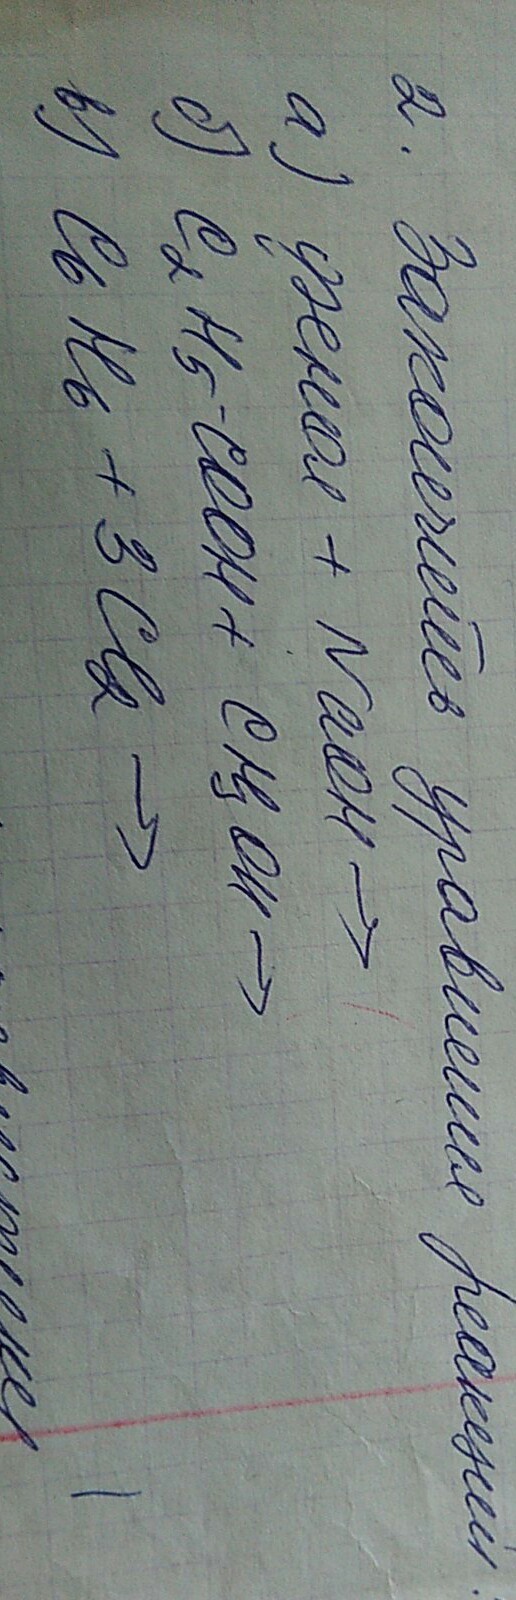 2. Закончить уравнение реакций:
а) фенол + NaOH →
б) C₂H₅-COOH + CH₃OH →
в) C₆H₆ + 3Cl₂ →